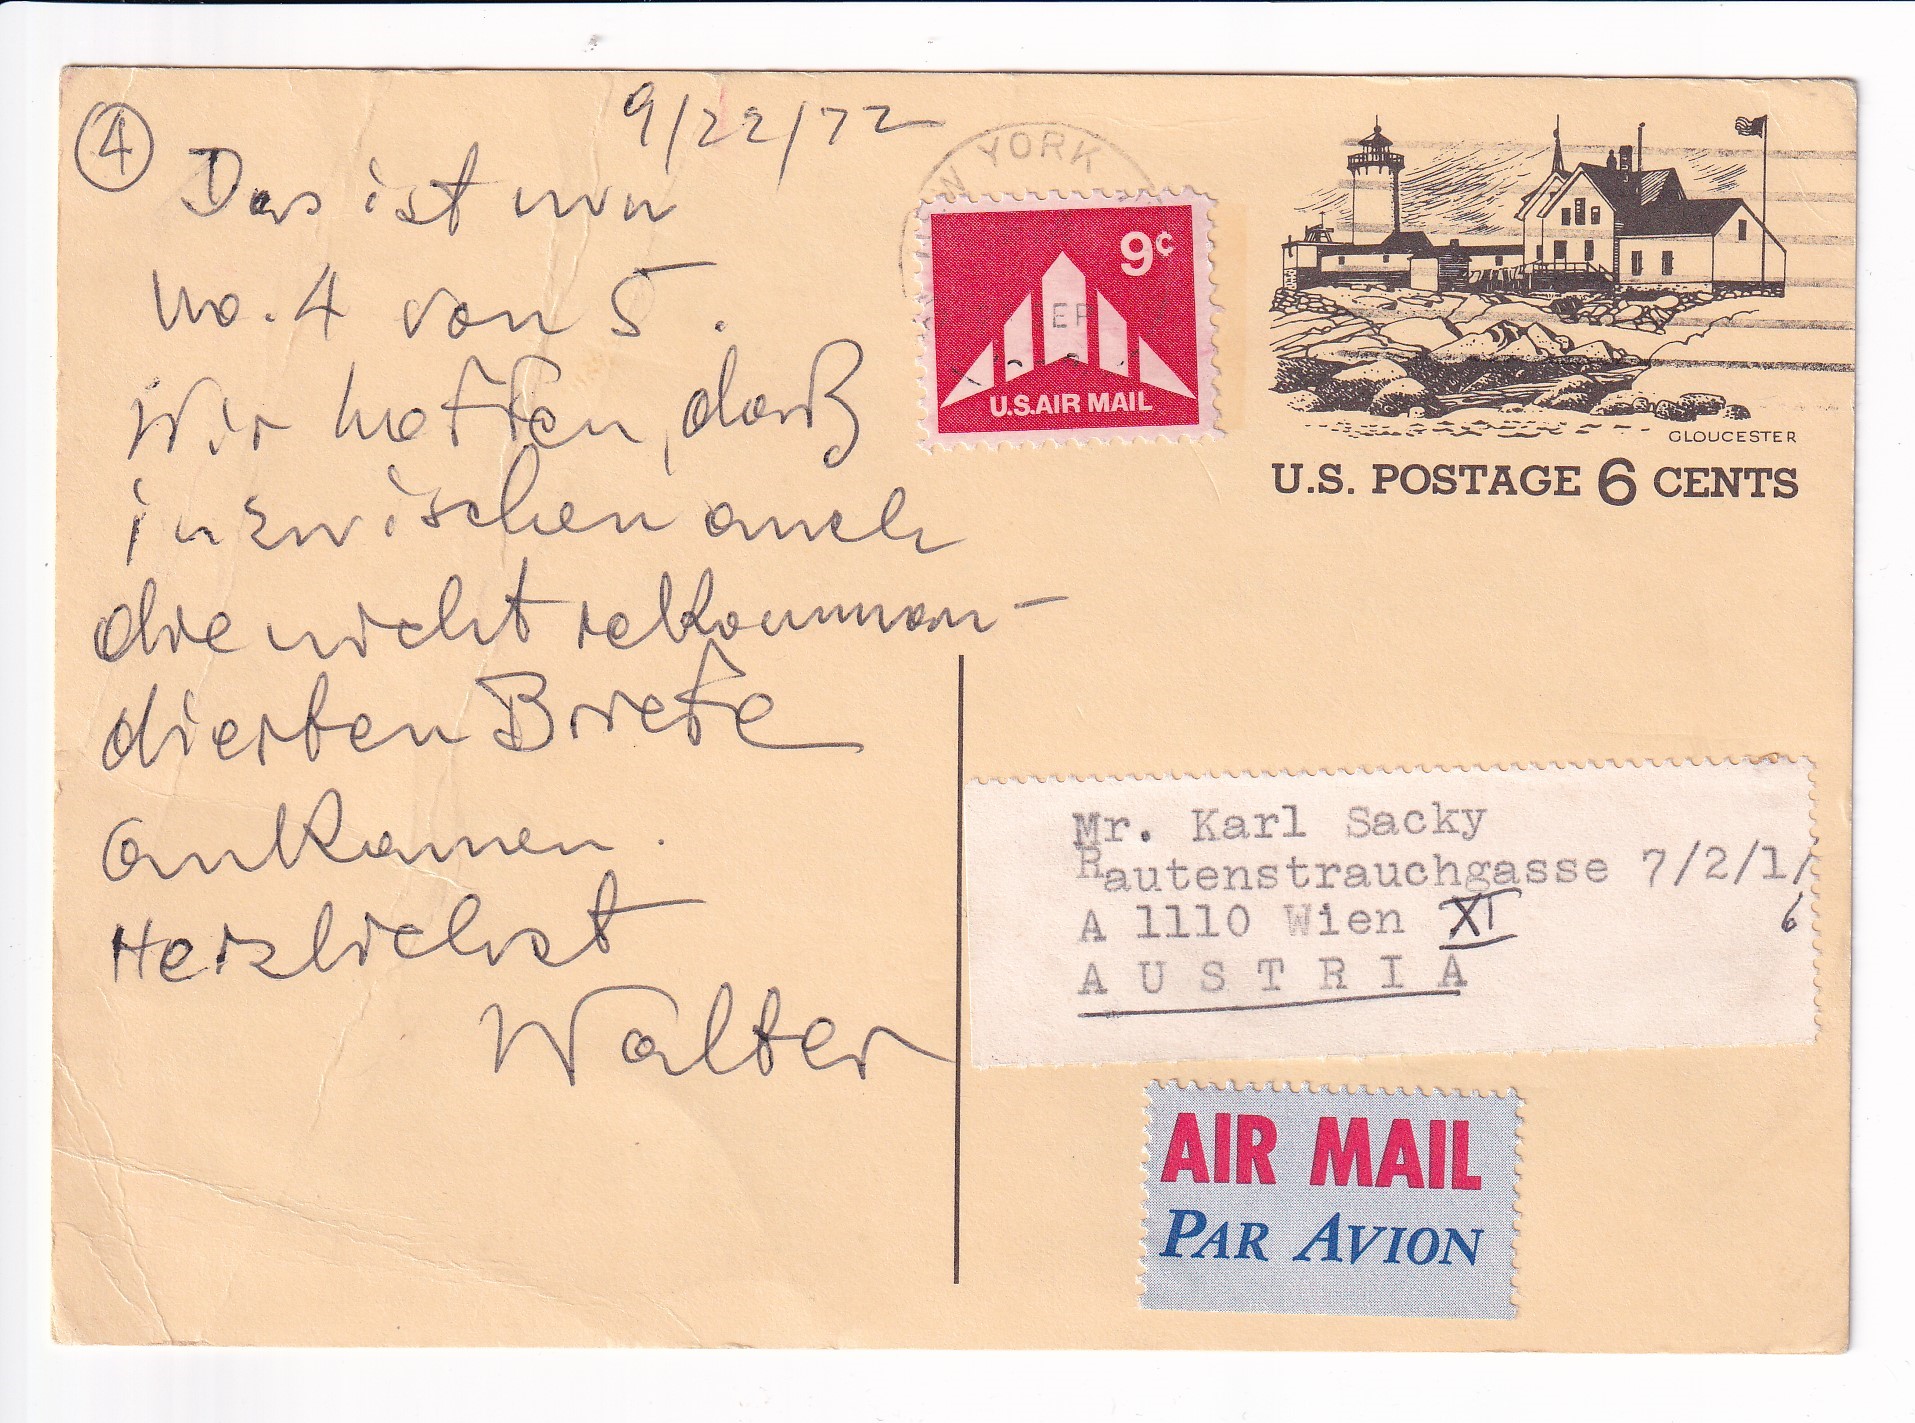 4
9/22/72
Das ist nun
No. 4 von 5.
Wir hoffen, daß
inzwischen auch
die nicht rekomman-
dierten Briefe
ankamen.
Herzlichst
Walter
NEW YORK
9¢
U.S.AIR MAIL
GLOUCESTER
U.S. POSTAGE 6 CENTS
Mr. Karl Sacky
Rautenstrauchgasse 7/2/1/
6
A 1110 Wien XI
AUSTRIA
AIR MAIL
PAR AVION